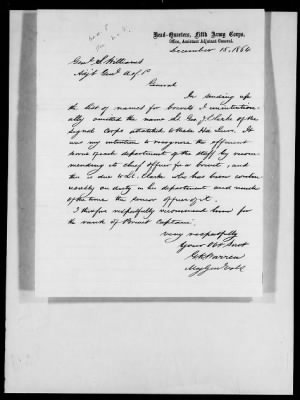 Head-Quarters, Fifth Army Corps,
Office, Assistant Adjutant General.
December 18, 1864
Genl. S. Williams
Adjt Genl A of P
General
In sending up
the list of names for brevets I unintention-
ally omitted the name Lt. Geo. J. Clarke of the
Signal Corps attached to these Hd. Qurs. It
was my intention to recognize the efficient
of each department of the staff by recom-
mending its chief officer for a brevet, and
this is due to Lt. Clarke who has been
on duty in his department and much
of the time the senior officer of it.
I therefore respectfully recommend him for
the rank of Brevet Captain.
Very respectfully
Your Obt Servt
G K Warren
Maj Genl Vols